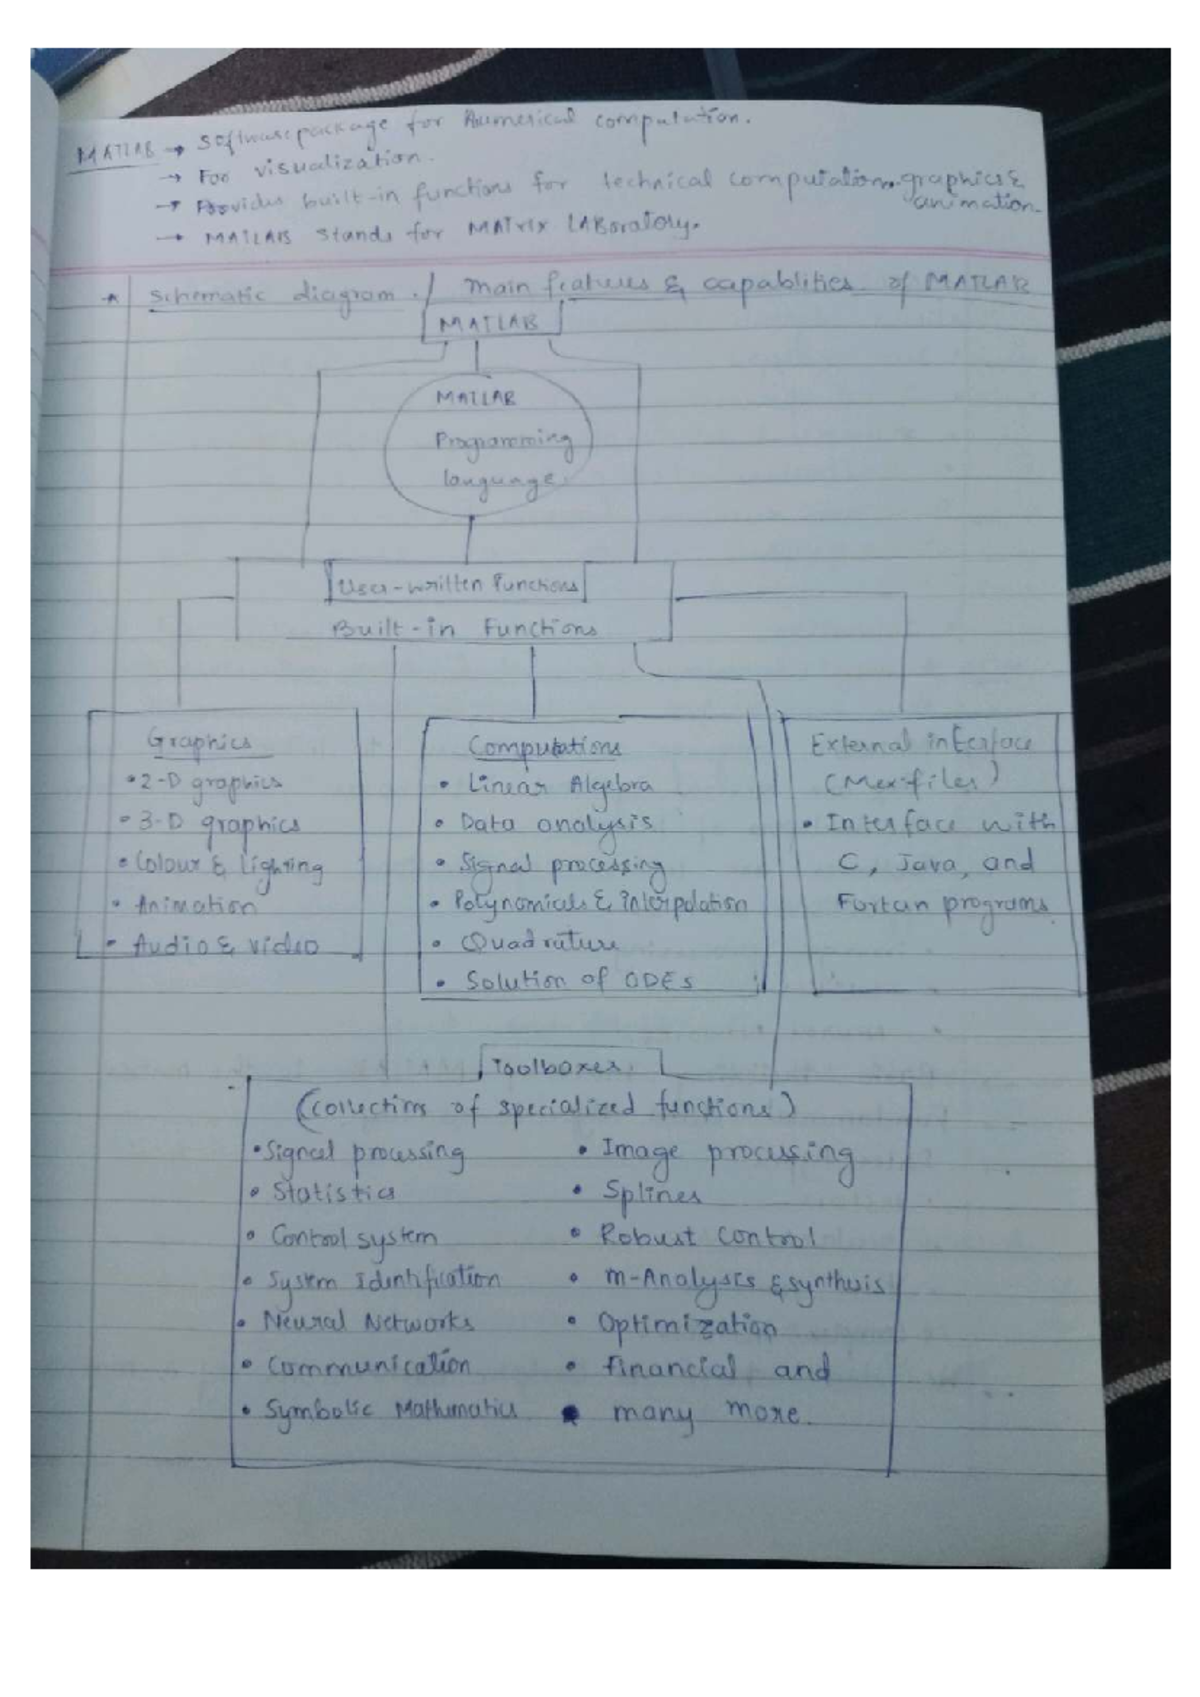 MATLAB → Software package for Numerical computation.
→ For visualization.
→ Provides built-in functions for technical computation, graphics &
animation.
→ MATLAB stands for MATrix LABoratory.
* Schematic diagram. / main features & capablities of MATLAB
MATLAB
MATLAB
Programming
language.
User-written Functions
Built-in Functions
Graphics
• 2-D graphics
• 3-D graphics
• Colour & Lighting
• Animation
• Audio & video
Computations
• Linear Algebra
• Data analysis
• Signal processing
• Polynomials & interpolation
• Quadrature
• Solution of ODEs
External interface
(Mex-files)
• Interface with
C, Java, and
Fortan programs
Toolboxes
(collections of specialized functions)
• Signal processing
• Statistics
• Control system
• System Identification
• Neural Networks
• Communication
• Symbolic Mathematics
• Image processing
• Splines
• Robust Control
• m-Analysis & synthesis
• Optimization
• financial and
• many more.